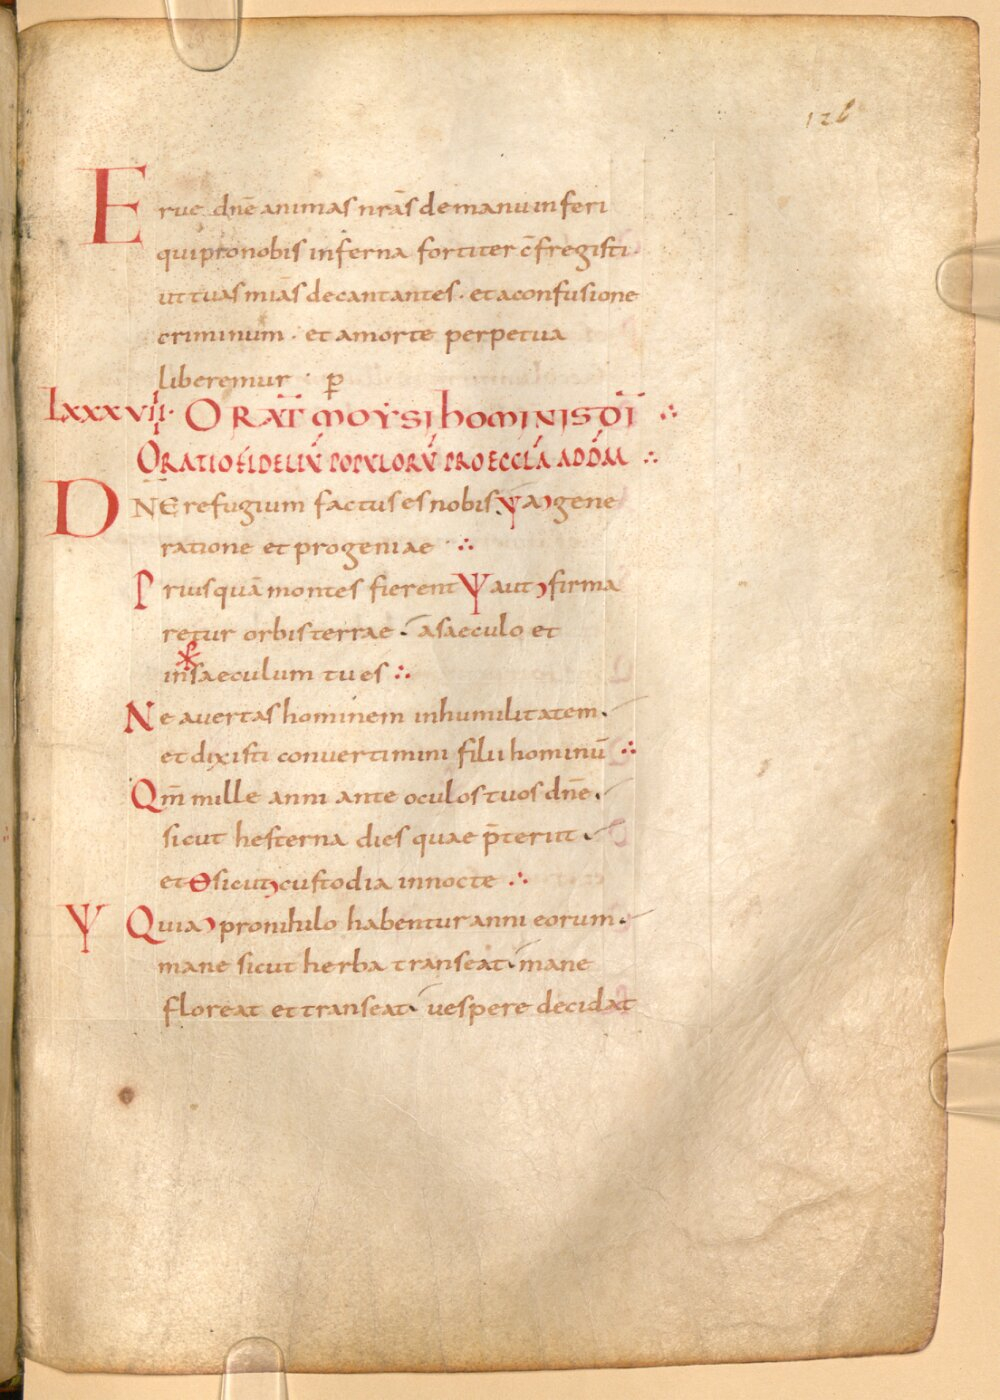 126
Erue dnē animas nrās demanuinferi
quipronobis inferna fortiter c̄fregisti·
uttuasmiās decantantes · etaconfusione
criminum · et amorte perpetua
liberemur · p̄
LXXXVIII· ORAT̄ MOYSI hOMINIS DĪ ∴
ORATIO FIDELIU POPULORU PRO ECCLA AD DM ∴
DN̄E refugium factus es nobis Ψ a ͻ gene
ratione et progeniae ∴
Priusquā montes fierent Ψ aut ͻ firma
retur orbis terrae · asaeculo et
in※saeculum tu es ∴
Ne auertas hominem inhumilitatem·
et dixisti conuertimini filii hominū ∴
Qm̄ mille anni ante oculos tuos dnē·
sicut hesterna dies quae p̄teriit ·
et Θ sicut ͻ custodia innocte ∴
Ψ Quia ͻ pronihilo habentur anni eorum·
mane sicut herba transeat· mane
floreat et transeat· uespere decidat